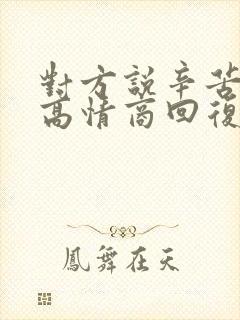 對方説辛苦
高情商回復
鳳舞在天